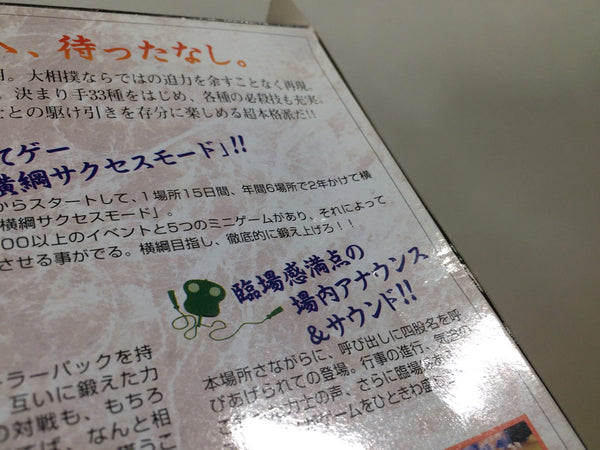 、待ったなし。
大相撲ならではの迫力を余すことなく再現。
決まり手33種をはじめ、各種の必殺技も充実。
との駆け引きを存分に楽しめる超本格派だ!!
てゲー
横綱サクセスモード」!!
からスタートして、1場所15日間、年間6場所で2年かけて横
横綱サクセスモード」。
00以上のイベントと5つのミニゲームがあり、それによって
させる事がでる。横綱目指し、徹底的に鍛え上げろ!!
臨場感満点の
場内アナウンス
&サウンド!!
本場所さながらに、呼び出しに四股名を呼
びあげられての登場。行事の進行、気合の
力士の声、さらに臨場
ゲームをひときわ盛
ラーパックを持
互いに鍛えた力
の対戦も、もちろ
ば、なんと相